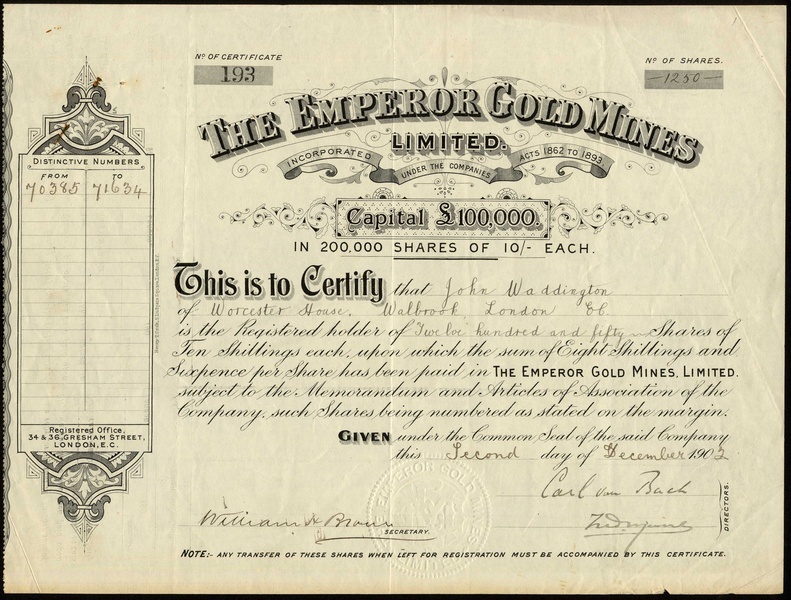 Nº OF CERTIFICATE
193
Nº OF SHARES.
1250
THE EMPEROR GOLD MINES
LIMITED.
INCORPORATED UNDER THE COMPANIES ACTS 1862 TO 1893.
Capital £100,000.
IN 200,000 SHARES OF 10/- EACH.
DISTINCTIVE NUMBERS
FROM TO
70385 71634
Registered Office,
34 & 36, GRESHAM STREET,
LONDON, E.C.
This is to Certify that John Waddington
of Worcester House, Walbrook London EC
is the Registered holder of Twelve hundred and fifty Shares of
Ten Shillings each, upon which the sum of Eight Shillings and
Sixpence per Share has been paid in THE EMPEROR GOLD MINES, LIMITED.
subject to the Memorandum and Articles of Association of the
Company, such Shares being numbered as stated on the margin.
GIVEN under the Common Seal of the said Company
this Second day of December 1902
Carl van Buch
DIRECTORS.
William H Brown
SECRETARY.
NOTE:- ANY TRANSFER OF THESE SHARES WHEN LEFT FOR REGISTRATION MUST BE ACCOMPANIED BY THIS CERTIFICATE.